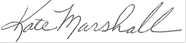 Kate Marshall